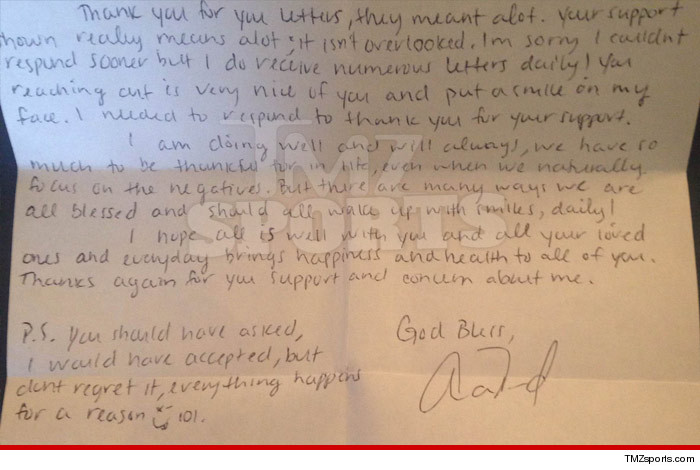 Thank you for you letters, they meant alot. Your support
shown really means alot & it isn't overlooked. I'm sorry I couldnt
respond sooner but I do receive numerous letters daily! You
reaching out is very nice of you and put a smile on my
face. I needed to respond to thank you for your support.
I am doing well and will always, we have so
much to be thankful for in life, even when we naturally
focus on the negatives. But there are many ways we are
all blessed and should all wake up with smiles, daily!
I hope all is well with you and all your loved
ones and everyday brings happiness and health to all of you.
Thanks again for you support and concern about me.
P.S. You should have asked,
I would have accepted, but
dont regret it, everything happens
for a reason lol.
God Bless,
TMZ
SPORTS
TMZsports.com